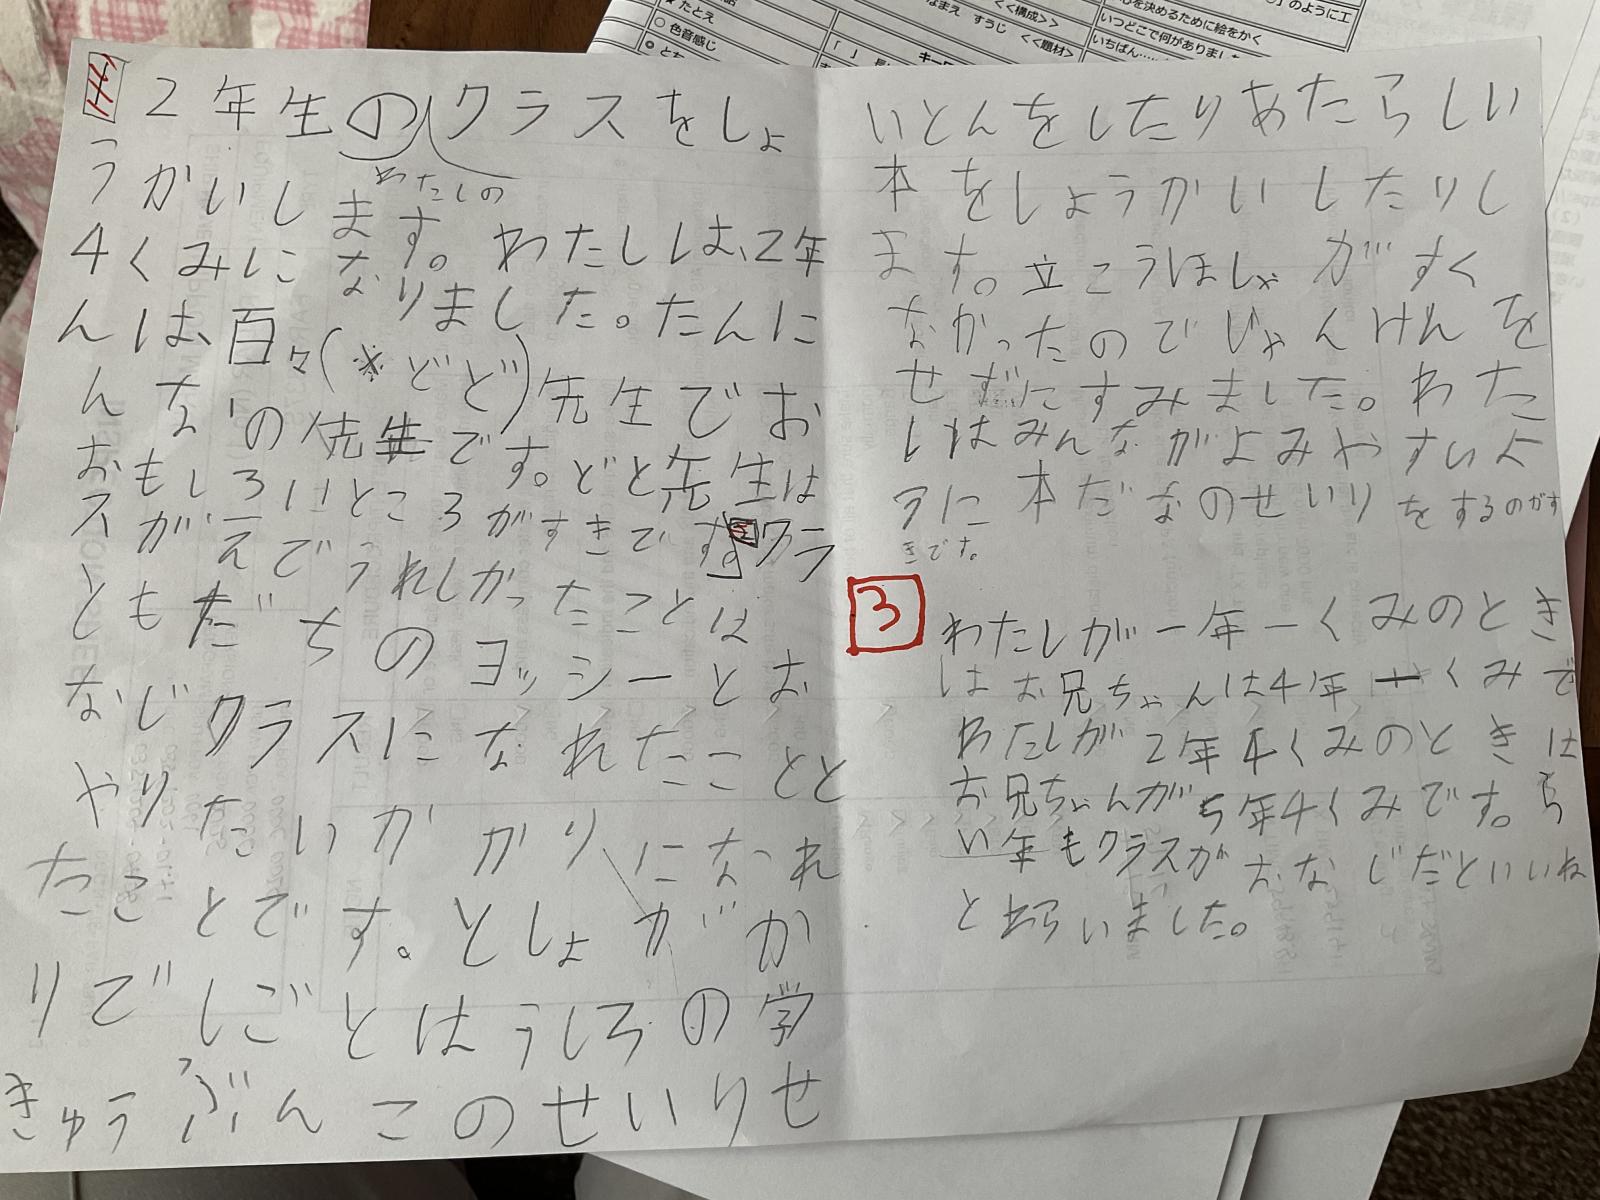 たとえ
色音感じ
なまえ すうじ <<題材>>
<<構成>>
を決めるために絵をかく
いつどこで何がありました
いちばん……
のように工
2年生のクラスをしょ
わたしの
うかいします。わたしは、2年
4くみになりました。たんに
んは、百々(※どど)先生でお
んなの先生です。どど先生は
おもしろいところがすきです。クラ
スがえでうれしかったことは
ともだちのヨッシーとお
なじクラスになれたことと
やりたいかがりになれ
たことです。としょがか
りでしごとはうしろの学
きゅうぶんこのせいりせ
いとんをしたりあたらしい
本をしょうかいしたりし
ます。立こうほしゃがすく
なかったのでじゃんけんを
せずにすみました。わた
しはみんながよみやすいよ
うに本だなのせいりをするのがす
きです。
3
わたしが一年一くみのとき
はお兄ちゃんは4年一くみで
わたしが2年4くみのときは
お兄ちゃんが5年4くみです。ら
い年もクラスがおなじだといいね
とわらいました。